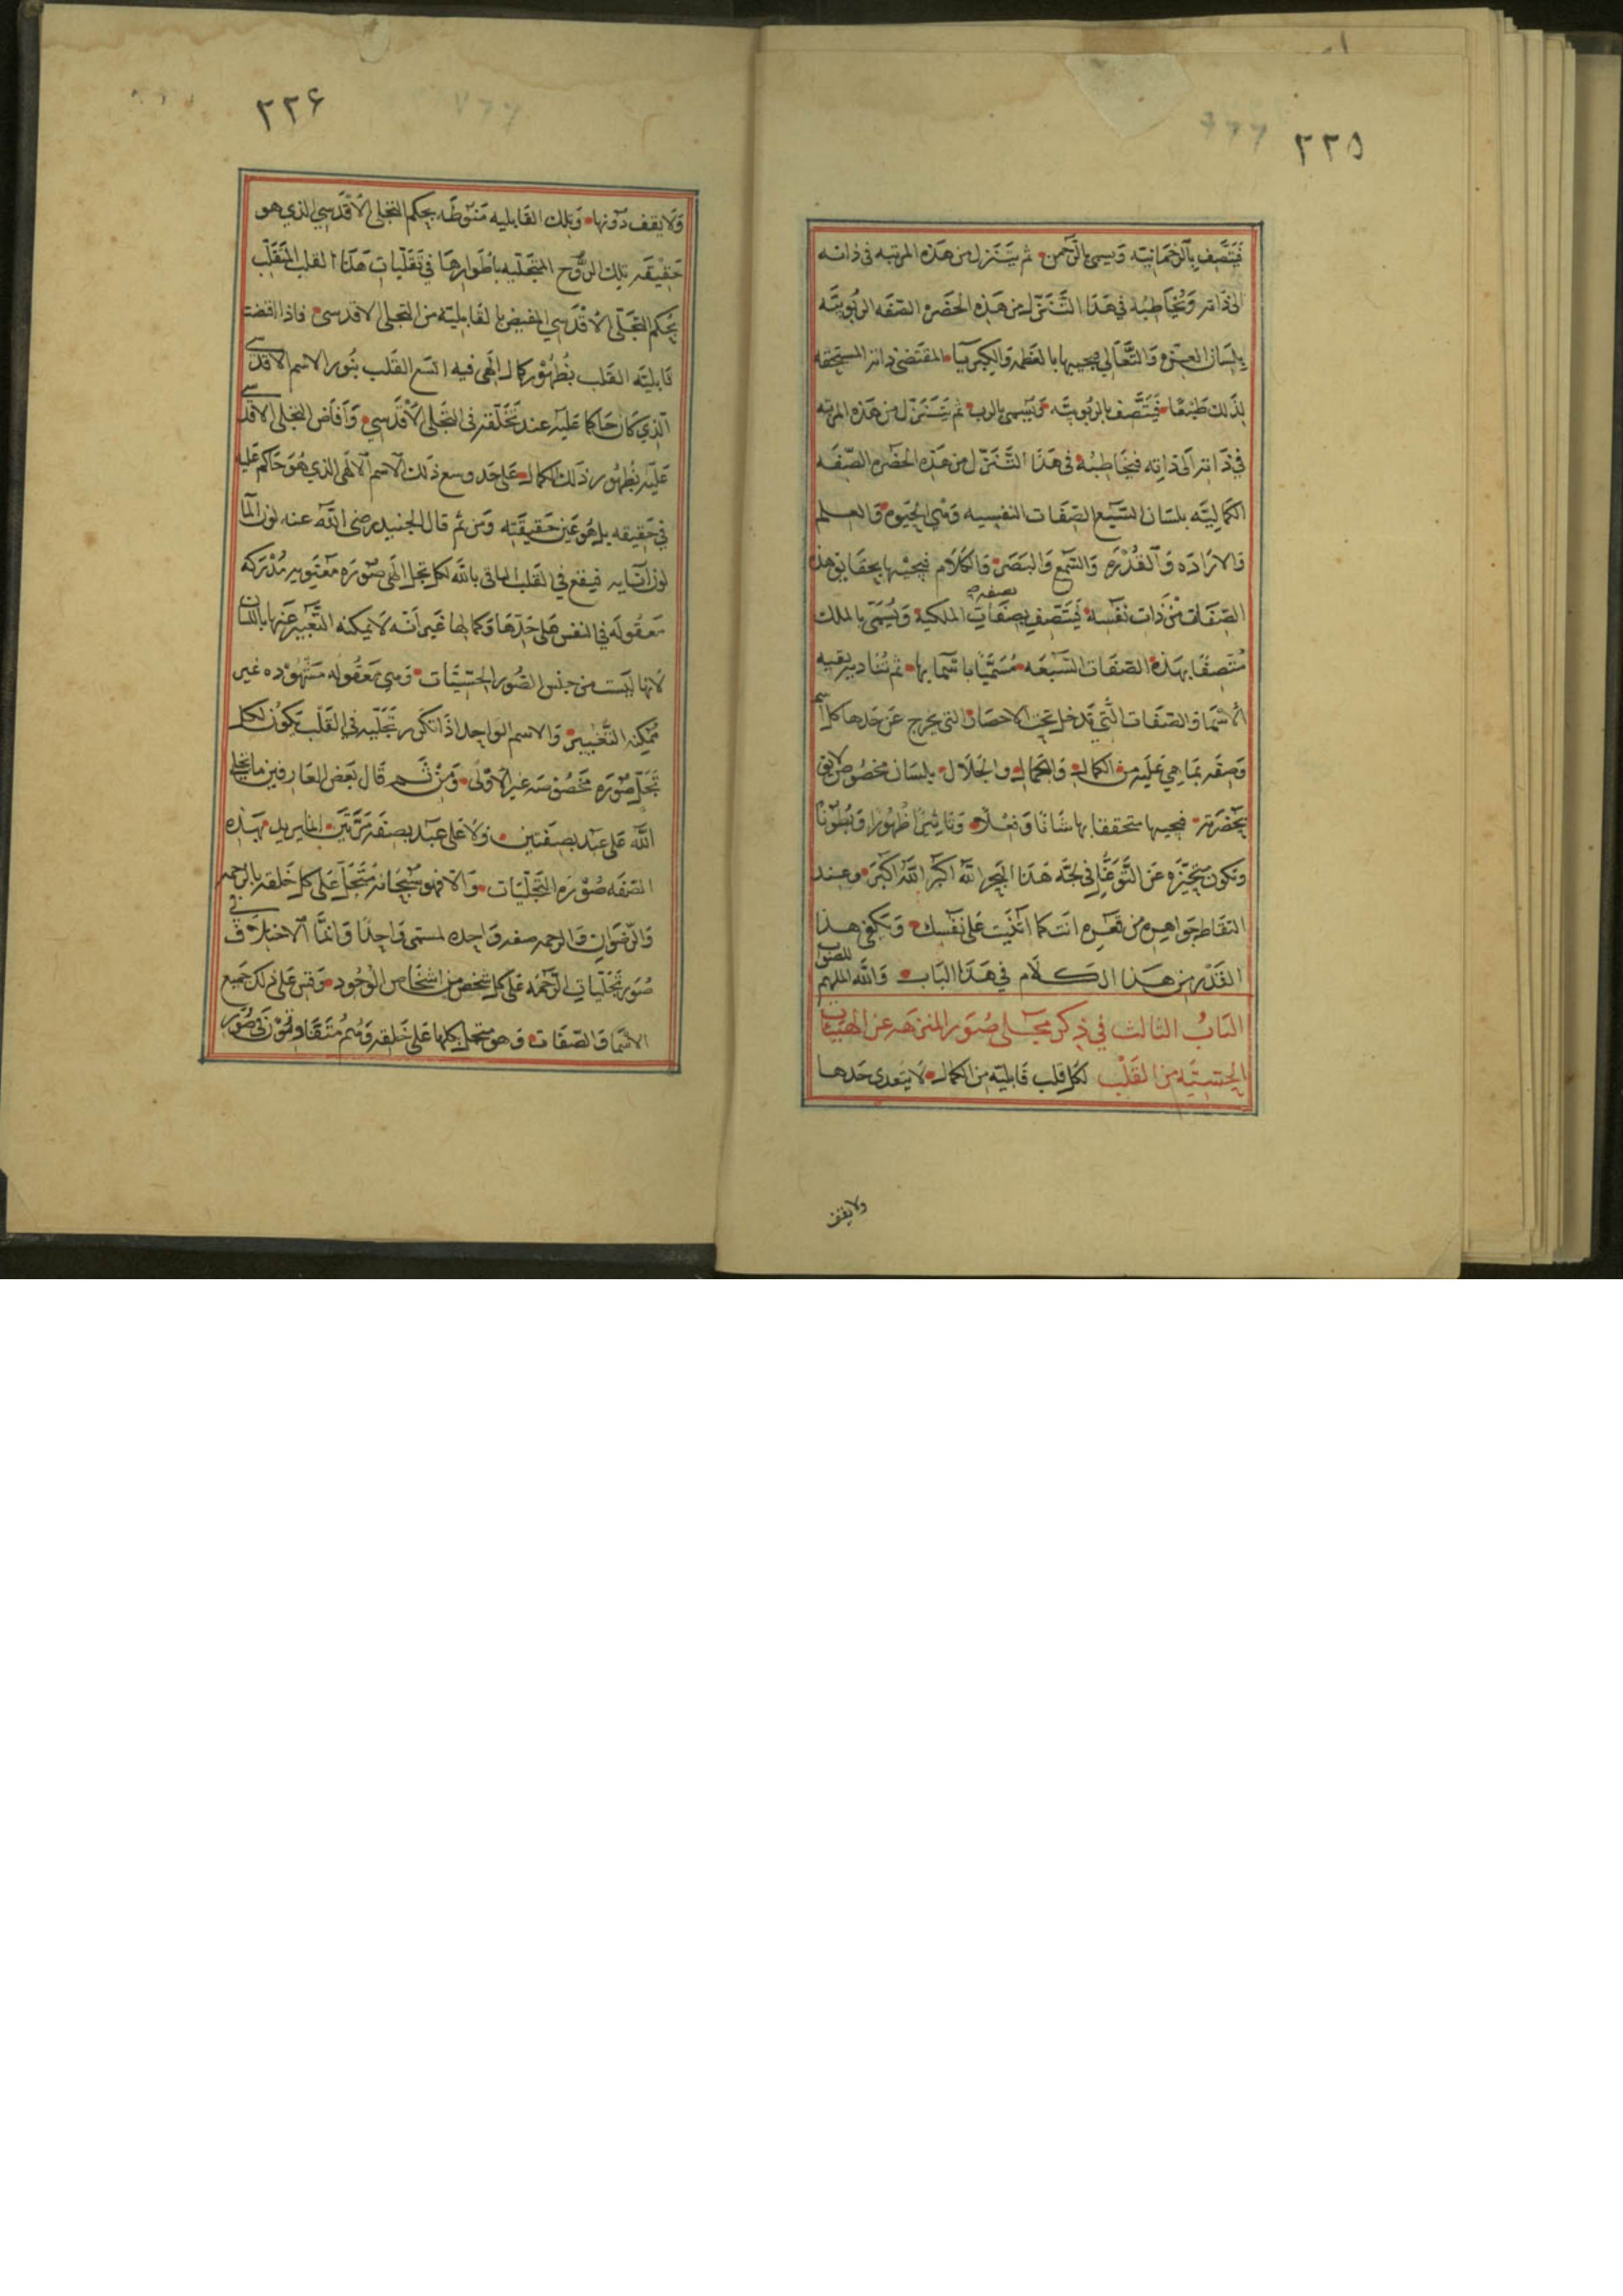 ٢٢٥
فَيَتَّصِف بِالرَّحمَانيّه وَيسمى بالرَّحمن ثم يَتَنَزل من هَذه المرتبه فى ذاته
الى ذاته وَيُخَاطبُه في هَذا التَّنَزّل من هَذه الحَضره الصّفَه الرُبُوبيَّه
بلسَان العِزه وَالتَّعَالي فيجيبها بالعَظمه وَالكبريَاء المقتَضى ذاته المستحقه
لذَلك طَبْعًا فَيَتَّصف بالرُبُوبيَّه وَيُسمى بالرب ثم يَتَنَزل من هَذه المرتبه
في ذاته الى ذاتِه فيخَاطبُهُ في هَذا التَّنَزّل من هَذه الحَضره الصّفَه
الكمَاليَّه بلسَان السَّبع الصّفَات النفسيه وَهْي الحَيوه وَالعلم
وَالارَادَه وَالقُدْرَه وَالسَّمع وَالبَصَر وَالكلَام فيجيبها بحقَايق هذه
الصّفَات مِنْ ذَات نَفْسه فَيَتَّصِف بصِفَاتِ الملكية وَيُسَمّى بالملك
بصفه
مُتّصِفًا بهَذه الصّفَات السَّبْعَه مُسَمَّيًا باسمَايها ثم تُنَاديه بقيه
الأسْمَا وَالصّفَات الَّتي تدخل تحت الاحصَا والتى تخرج عَن حَدها كل اسم
وَصفه بمَا هي عَليه من الكمال وَالجمَال والجَلَال بلسَان مخصُوص لايق
بحَضرَته فيجيبها متحققا بها شَانًا وَفعْلًا وَتَاثيرًا ظهُورًا وَبُطُونًا
وَتكون متحيّزه عَن التَّوَغُّل في لجَّه هَذا البَحر اللّه اكبَر اللَّهُ اكْبَر وعِند
التقاط جَوَاهِره من قَعره انت كما اثنَيت عَلى نَفْسك وَيكفى هذا
القَدْر من هَذا الكلَام في هَذا البَاب وَاللَّه الملهم
للصواب
البَابُ الثالث في ذِكر مجَلى صُوَر المنزهَه عن الهَيْئات
الحسّيَّه من القَلْب لكل قلب قَابليّه من الكمال لَا يتعدى حَدها
ولا يقف
٢٢٦
وَلَا يقف دُونها وَتلك القَابليه مَنوُطَه بحكم التجلى الأقْدَسي الذي هو
حَقيقَه تِلك الرُّوح المتجَلّيه بأطوَارها في تَقَلّبَات هَذا القلب المتَقَلّب
بحكم التجَلّى الأقْدَسي المفيض بالقَابليّه من التجلى الاقدسى فاذا اقتضت
قَابليّه القَلب بظُهُور كمال الَهى فيه اتسَع القَلب بنُور الاسم الاقدسى
الّذي كَان حَاكما عَليه عند تَخَلّقه في التجَلى الأقْدَسي وَأفَاض التجلى الاقدسى
عَليه بظُهُور ذَلك الكمال عَلى حَد وسع ذَلك الاسم الالَهى الذي هُوَ حَاكم عَليه
في حَقيقه بل هُوَ عَين حَقيقَته وَمن ثم قال الجنيد رضى اللَّه عنه لون المآ
لون انَايه فيقع في القَلب الباقى باللَّه لكل تجل الَهى صُورَه مَعنَويه مُدْرَكه
مَعقُولَه في النفس عَلى حَدّهَا وَكما لها غَير أنّه لَا يمكنه التَّعْبير عَنها باللسَان
لَانها ليْست من جنس الصُّور الحسّيَّات وَهي مَعقُوله مَشْهُوْده غير
مُمكنه التَّعْبير وَالاسم الوَاحد اذا تكرر تجَلّيه في القَلْب تكُون لكل
تجَلّ صُورَه مخصُوصَه غير الأوْلى وَمِنْ ثَم قَال بَعْض العَارفين ما تجلى
اللَّه عَلى عَبْد بصفَتين وَلا عَلى عَبْد بصفَه مَرَّتَيْن انما يريد بهَذه
الصّفَه صُوْرَه التّجَلّيَات وَالا فهو سُبحَانه مُتَجَلّ عَلى كل خَلقه بالرحمه
وَالرّضوَان وَالرحمه صفه وَاحده لمسَمى وَاحِدًا وَانمَّا الاختلَاف في
صُوَر تَجَلّيات الرَّحمَه عَلى كل شخص من اشخَاص الوُجُود وَقس عَلى ذلك جَميع
الاسْمَا وَالصّفَات وَهو متجل بكلها عَلى خَلقه وَهُم مُتَفَاوتُوْن في صُوَر